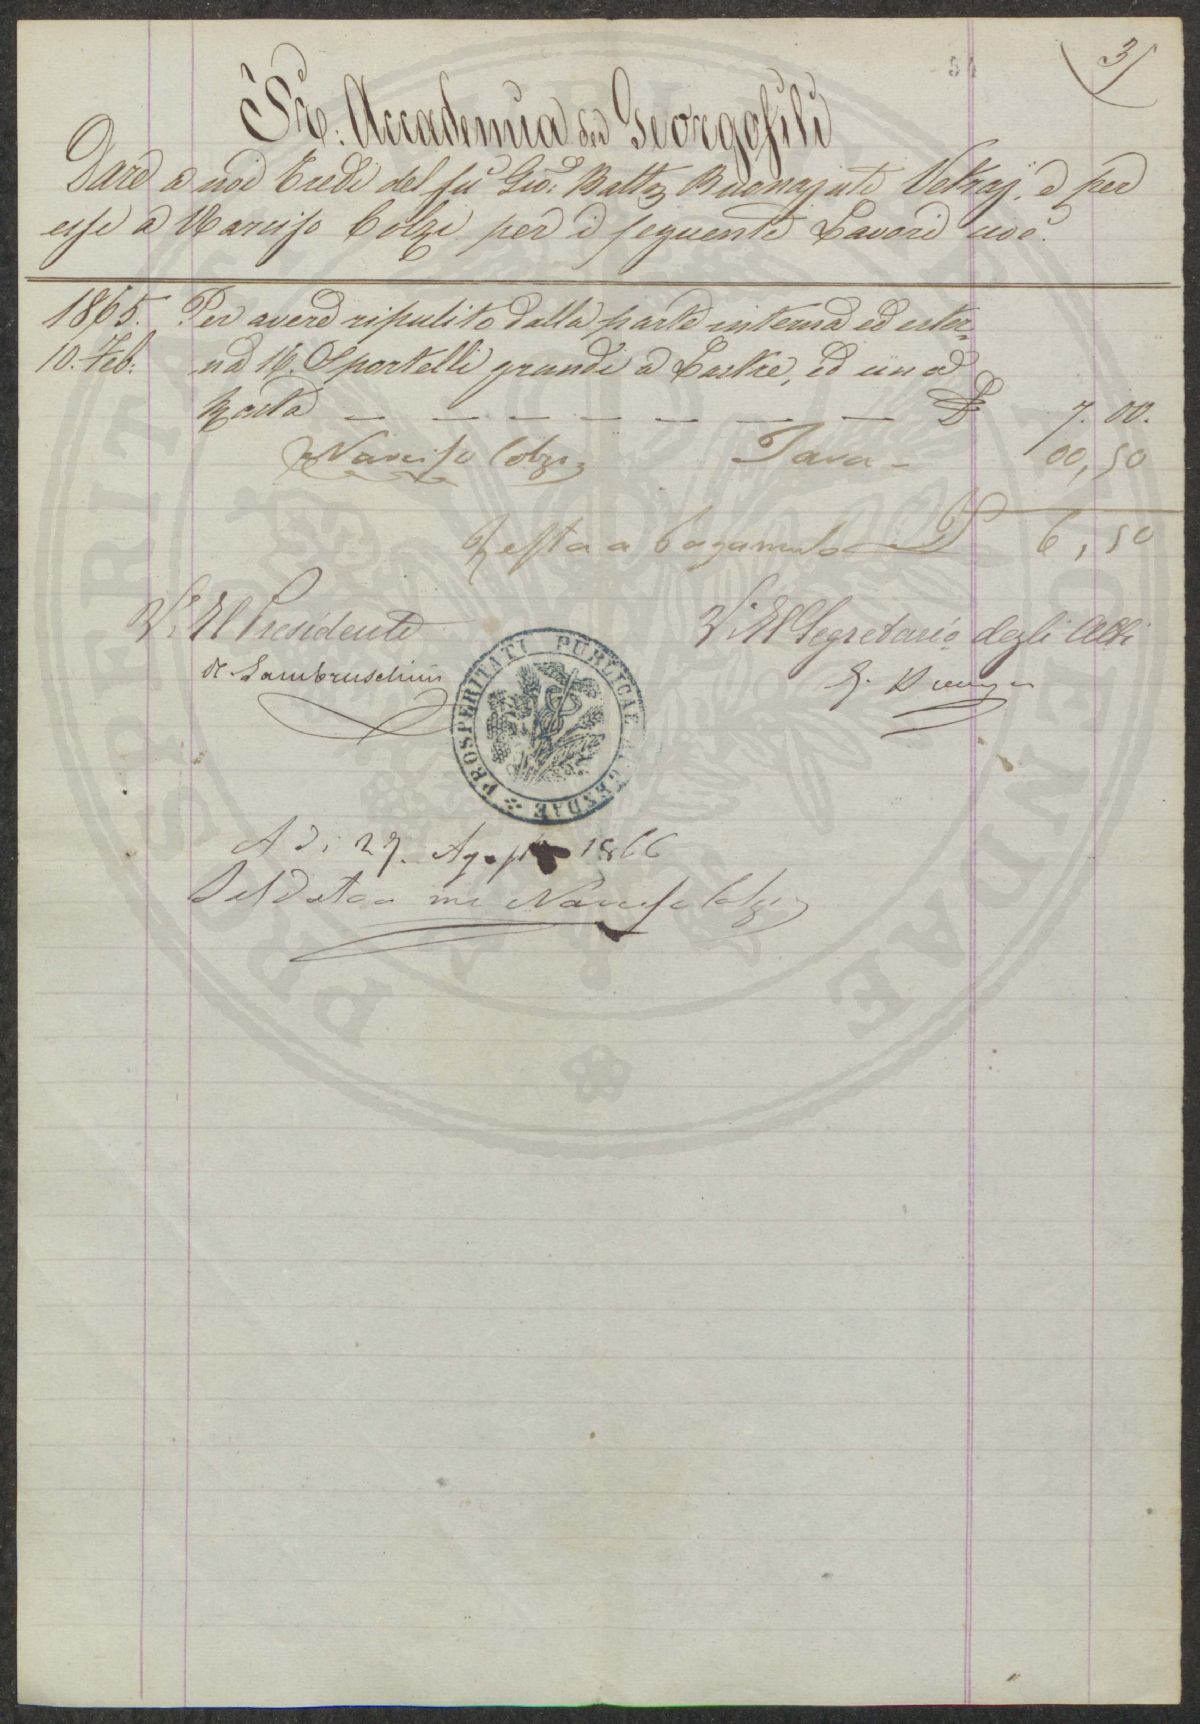 3
54
Accademia dei Georgofili
Dare a noi Eredi del fu Gio: Batta Buonajuti Vetraj, e per
essi a Narciso Colzi per i seguenti Lavori cioè.
1865. Per avere ripulito dalla parte interna ed ester-
10. Feb: na 16. Sportelli grandi a Lastre, ed una
Porta — — — — — — — — £ 7.00.
Narciso Colzi Tara - 00,50
Resta a pagamento £ 6,50
V: Il Presidente V: Il Segretario degli Atti
R. Lambruschini
PROSPERITATI PUBLICAE AUGENDAE
A di 27. Agosto 1866
Saldato a me Narciso Colzi
PROSPERITATI PUBLICAE AUGENDAE